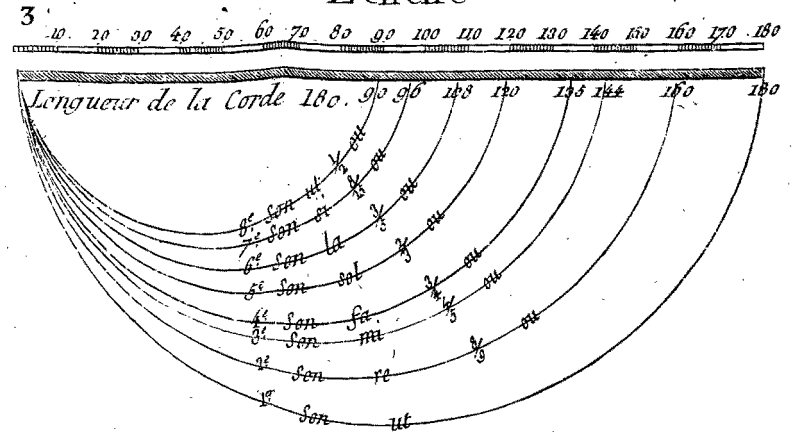 3
10 20 30 40 50 60 70 80 90 100 110 120 130 140 150 160 170 180
Longueur de la Corde 180. 90 96 108 120 135 144 160 180
8.e Son ut 1/2 ou
7.e Son si 8/15 ou
6.e Son la 3/5 ou
5.e Son sol 2/3 ou
4.e Son fa 3/4 ou
3.e Son mi 4/5 ou
2.e Son re 8/9 ou
1.er Son ut